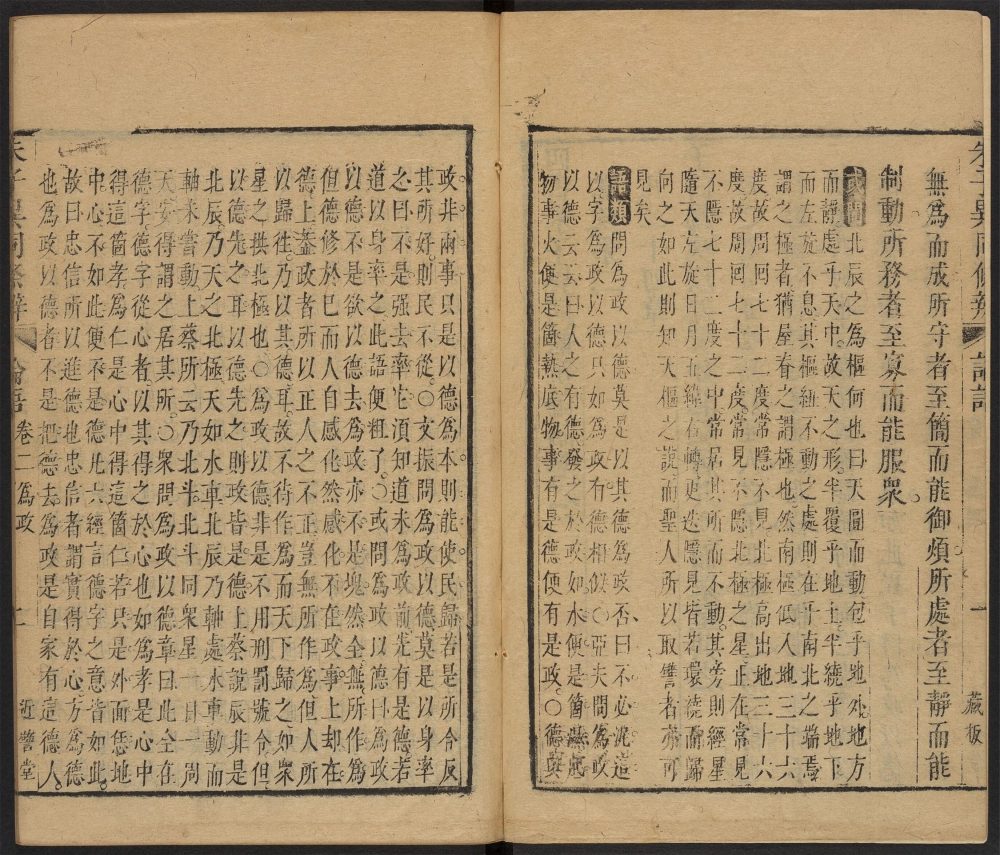 無爲而成所守者至簡而能御煩所處者至靜而能
制動所務者至寡而能服衆
或問北辰之爲樞何也曰天圓而動包乎地外地方
而靜處乎天中故天之形半覆乎地上半繞乎地下
而左旋不息其樞紐不動之處則在乎南北之端焉
謂之極者猶屋脊之謂極也然南極低入地三十六
度故周回七十二度常隱不見北極高出地三十六
度故周回七十二度常見不隱北極之星正在常見
不隱七十二度之中常居其所而不動其旁則經星
隨天左旋日月五緯右轉更迭隱見皆若環繞而歸
向之如此則知天樞之說而聖人所以取譬者亦可
見矣
語類問爲政以德莫是以其德爲政否曰不必泥這
以字爲政以德只如爲政有德相似○亞夫問爲政
以德云云曰人之有德發之於政如水便是箇濕底
物事火便是箇熱底物事有是德便有是政○德與
藏板
政非兩事只是以德爲本則能使民歸若是所令反
其所好則民不從○文振問爲政以德莫是以身率
之曰不是强去率它須知道未爲政前先有是德若
道以身率之此語便粗了○或問爲政以德曰爲政
以德不是欲以德去爲政亦不是塊然全無所作爲
但德修於已而人自感化然感化不在政事上却在
德上蓋政者所以正人之不正豈無所作爲但人所
以歸往乃以其德耳故不待作爲而天下歸之如衆
星之拱北極也○爲政以德非是不用刑罰號令但
以德先之耳以德先之則政皆是德上蔡說辰非是
北辰乃天之北極天如水車北辰乃軸處水車動而
軸未嘗動上蔡所云乃北斗北斗同衆星一日一周
天安得謂之居其所○衆問爲政以德章曰此全在
德字德字從心者以其得之於心也如爲孝是心中
得這箇孝爲仁是心中得這箇仁若只是外面恁地
中心不如此便不是德凡六經言德字之意皆如此
故曰忠信所以進德也忠信者謂實得於心方爲德
也爲政以德者不是把德去爲政是自家有這德人
論語 卷二爲政
二
近譬堂